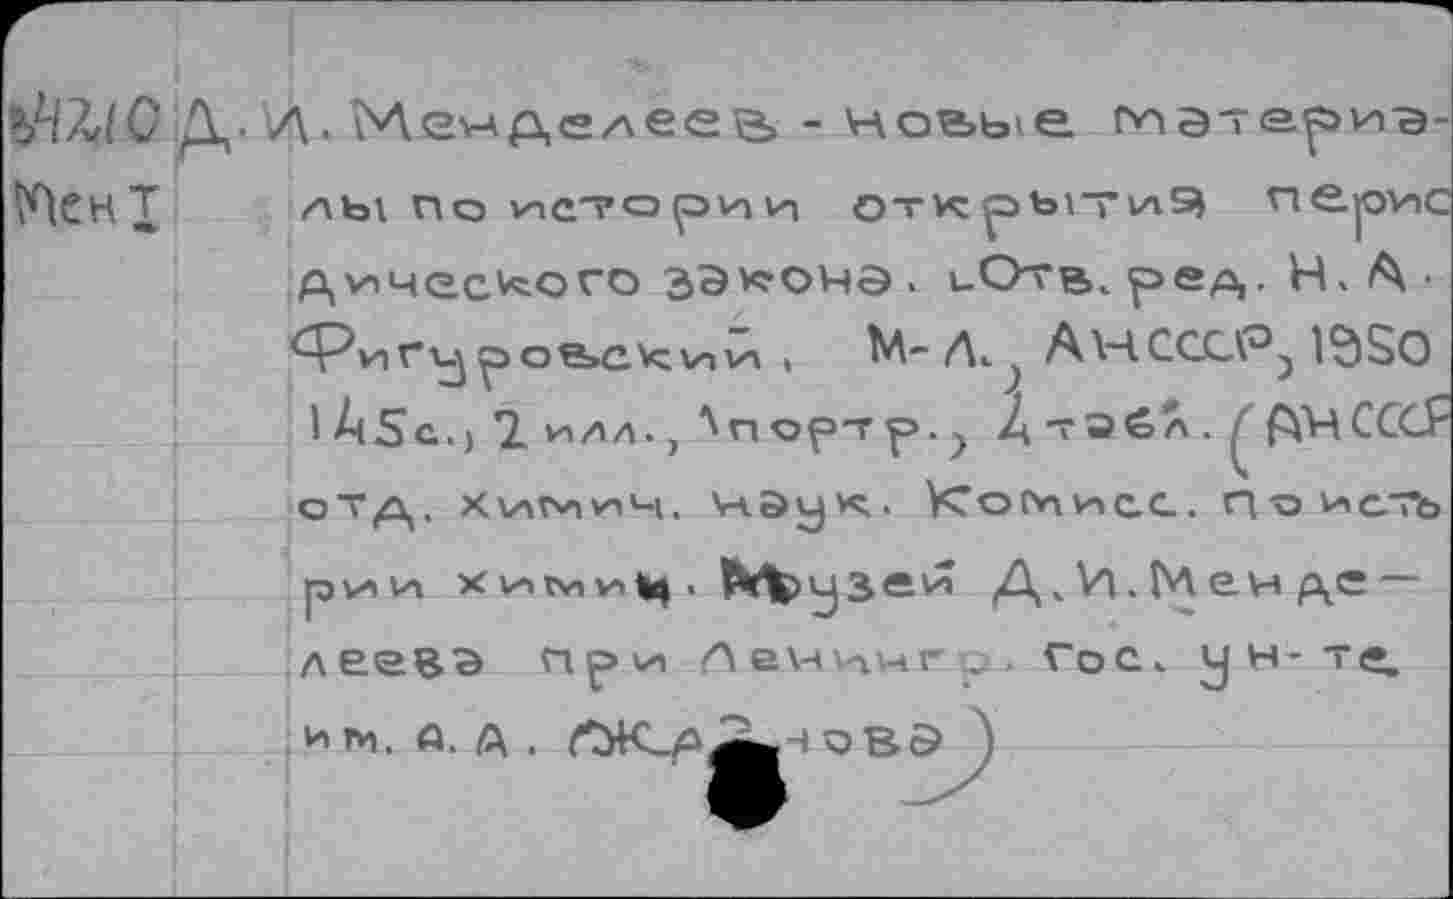 Д. И. Менделеев - новые материа-
Мен I лы по истории открытия перио
дического закона. Отв. ред. Н. А.
Фигуровский, М-Л., АН СССР, 1950
145 с., 2 илл., 1 портр., 4 табл. (АН СССР
отд. химич. наук. Комисс. по исто
рии химии. Музей Д. И. Менде-
леева при Ленингр. Гос. ун-те
им. А. А. Жданова)